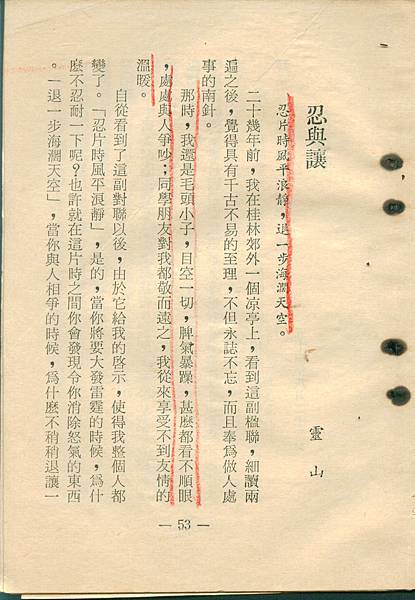 忍與讓
靈山
忍片時風平浪靜，退一步海濶天空。
二十幾年前，我在桂林郊外一個凉亭上，看到這副楹聯，細讀兩
遍之後，覺得具有千古不易的至理，不但永誌不忘，而且奉爲做人處
事的南針。
那時，我還是毛頭小子，目空一切，脾氣暴躁，甚麽都看不順眼
，處處與人爭吵；同學朋友對我都敬而遠之，我從來享受不到友情的
溫暖。
自從看到了這副對聯以後，由於它給我的啓示，使得我整個人都
變了。「忍片時風平浪靜」，是的，當你將要大發雷霆的時候，爲什
麽不忍耐一下呢？也許就在這片時之間你會發現令你消除怒氣的東西
。「退一步海濶天空」，當你與人相爭的時候，爲什麽不稍稍退讓一
— 53 —